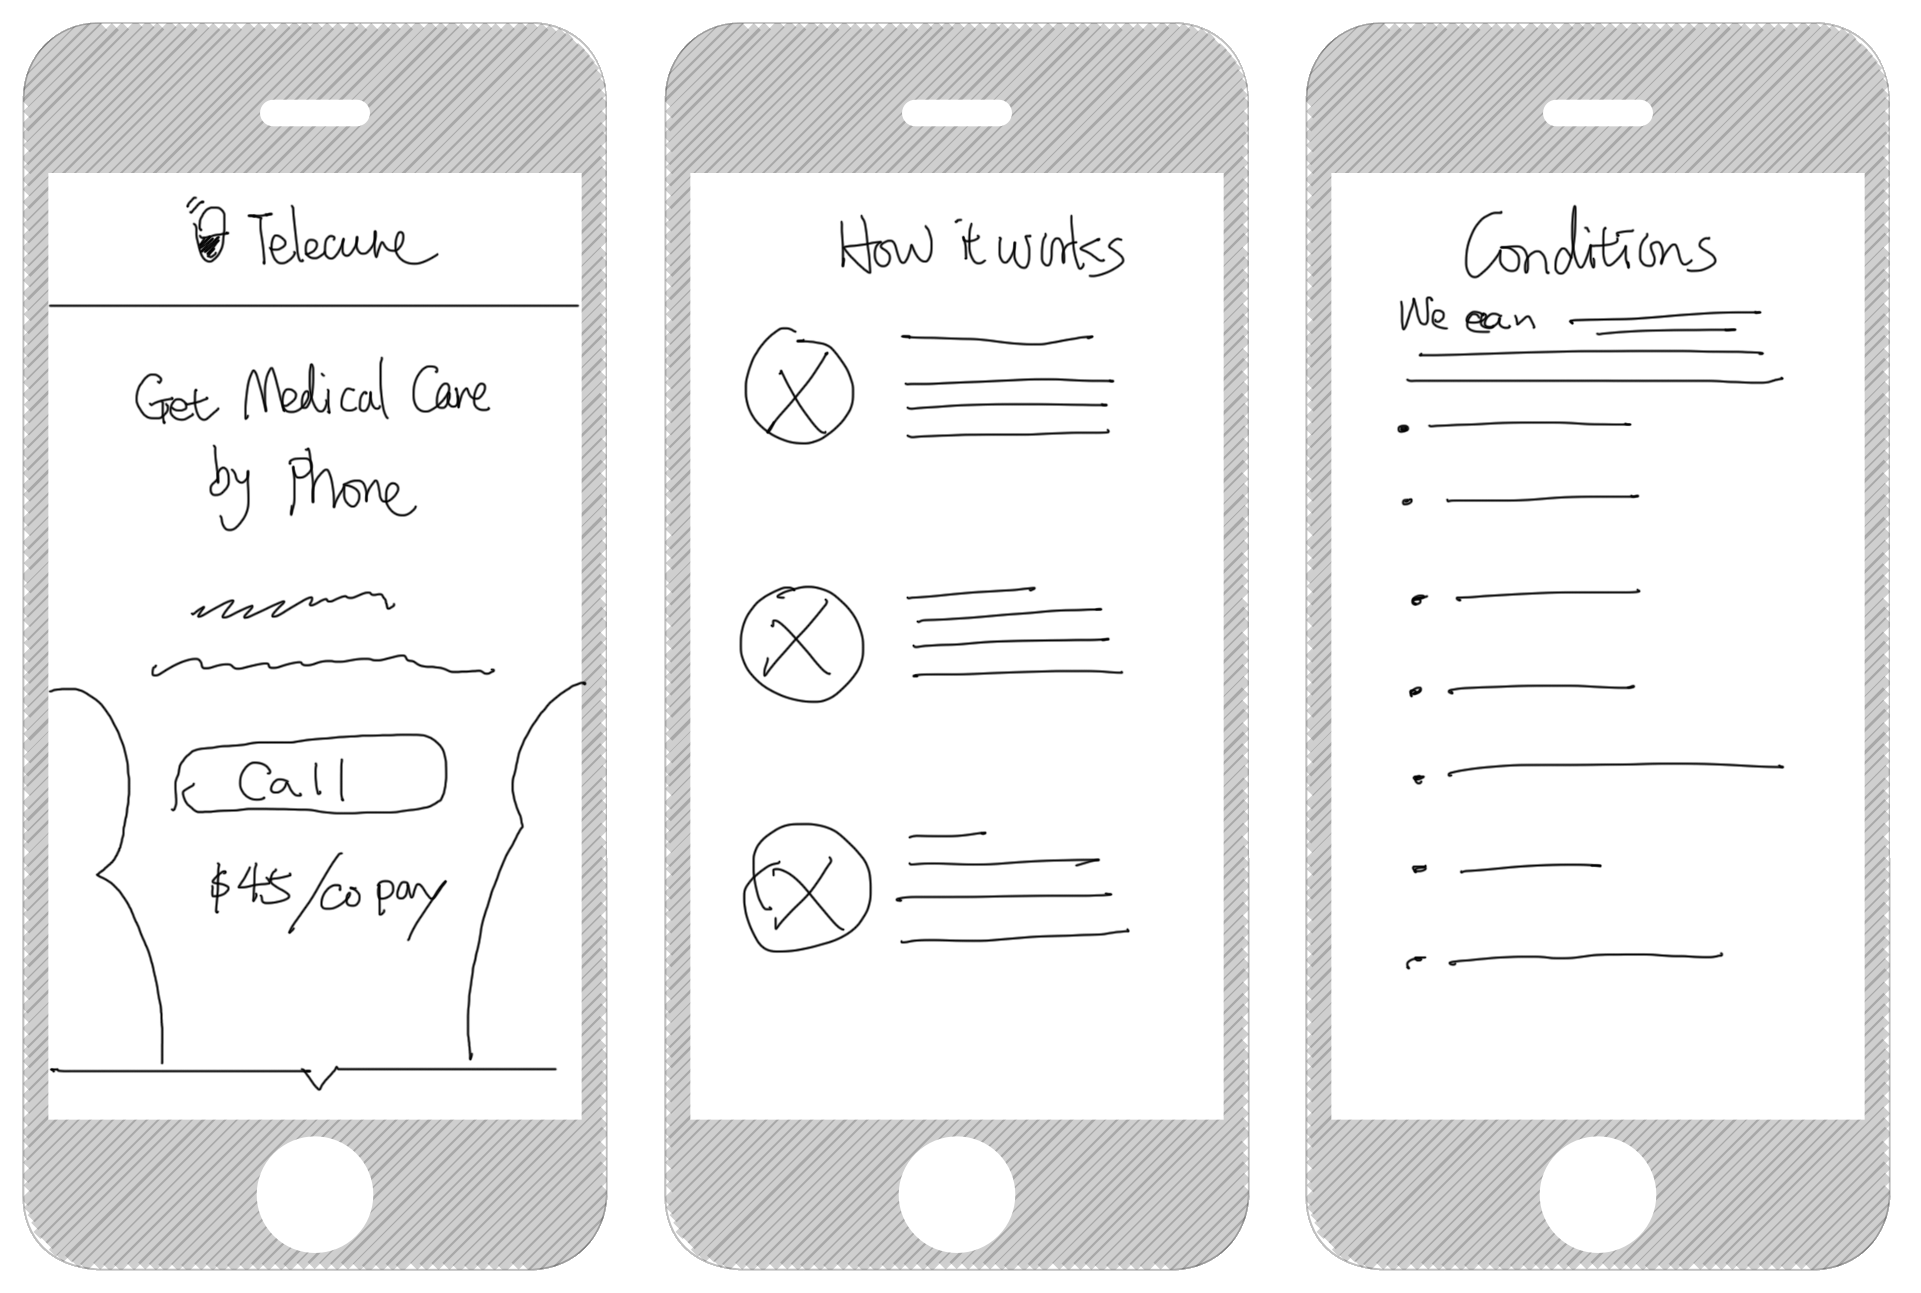 Telecure
Get Medical Care
by Phone
Call
$45/copay
How it works
Conditions
We can